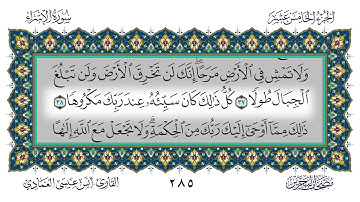 الجزء الخامس عشر
سورة الإسراء
وَلَا تَمْشِ فِي الْأَرْضِ مَرَحًا ۖ إِنَّكَ لَن تَخْرِقَ الْأَرْضَ وَلَن تَبْلُغَ
الْجِبَالَ طُولًا ٣٧ كُلُّ ذَٰلِكَ كَانَ سَيِّئُهُ عِندَ رَبِّكَ مَكْرُوهًا ٣٨
ذَٰلِكَ مِمَّا أَوْحَىٰ إِلَيْكَ رَبُّكَ مِنَ الْحِكْمَةِ ۗ وَلَا تَجْعَلْ مَعَ اللَّهِ إِلَٰهًا
القارئ: أنس عيسى العمادي
٢٨٥